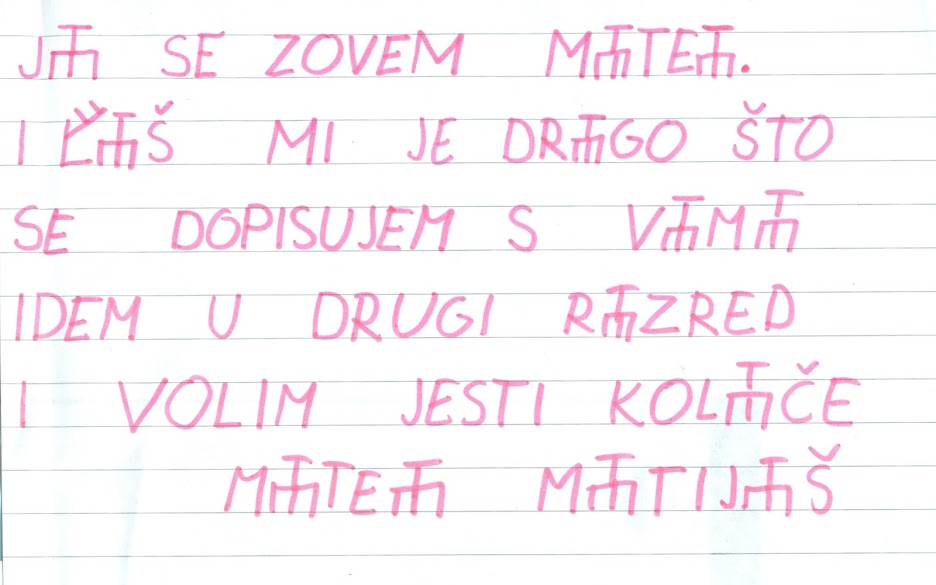 JⰀ SE ZOVEM MⰀTEⰀ.
I ⰁⰀŠ MI JE DRⰀGO ŠTO
SE DOPISUJEM S VⰀMⰀ
IDEM U DRUGI RⰀZRED
I VOLIM JESTI KOLⰀČE
MⰀTEⰀ MⰀTIJⰀŠ